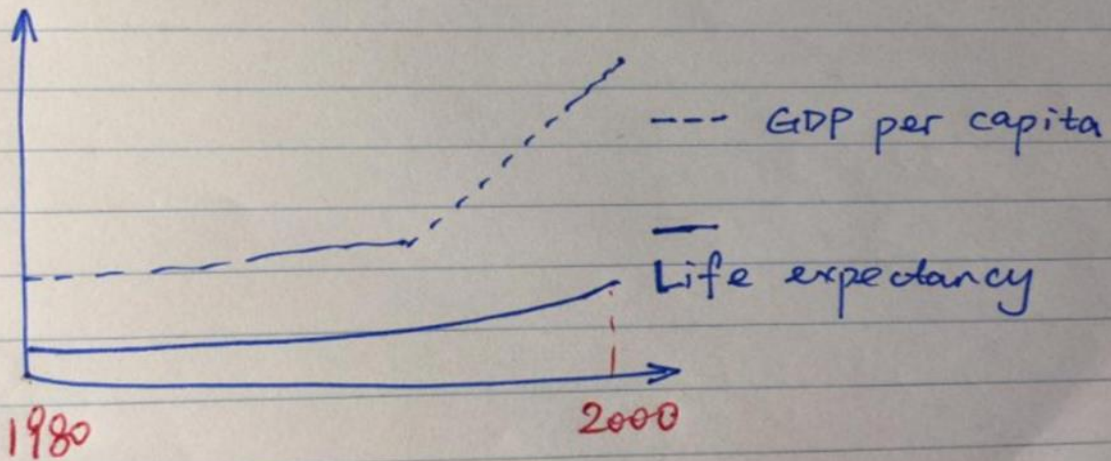 --- GDP per capita
— Life expectancy
1980
2000